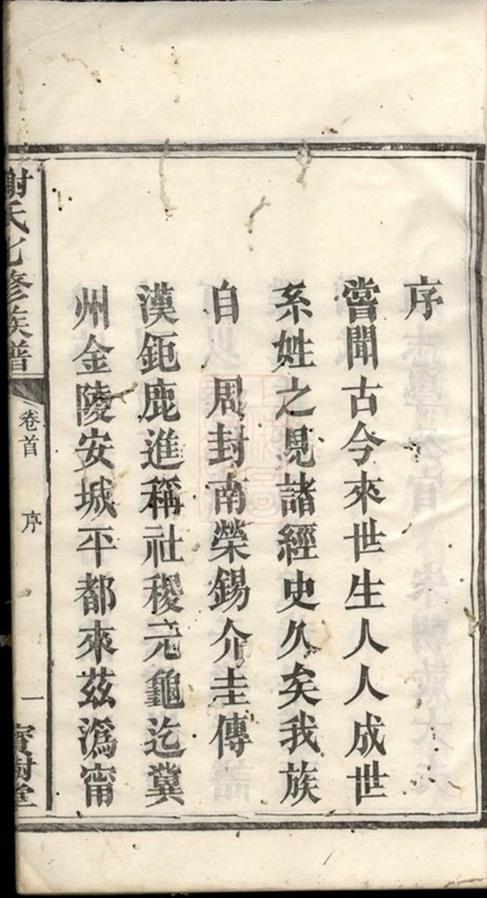 序
嘗聞古今來世生人人成世
系姓之見諸經史久矣我族
自 周封南榮錫介圭傳
漢鉅鹿進稱社稷元龜迄冀
州金陵安城平都來茲溈甯
謝氏七修族譜
卷首
序
一
寶樹堂